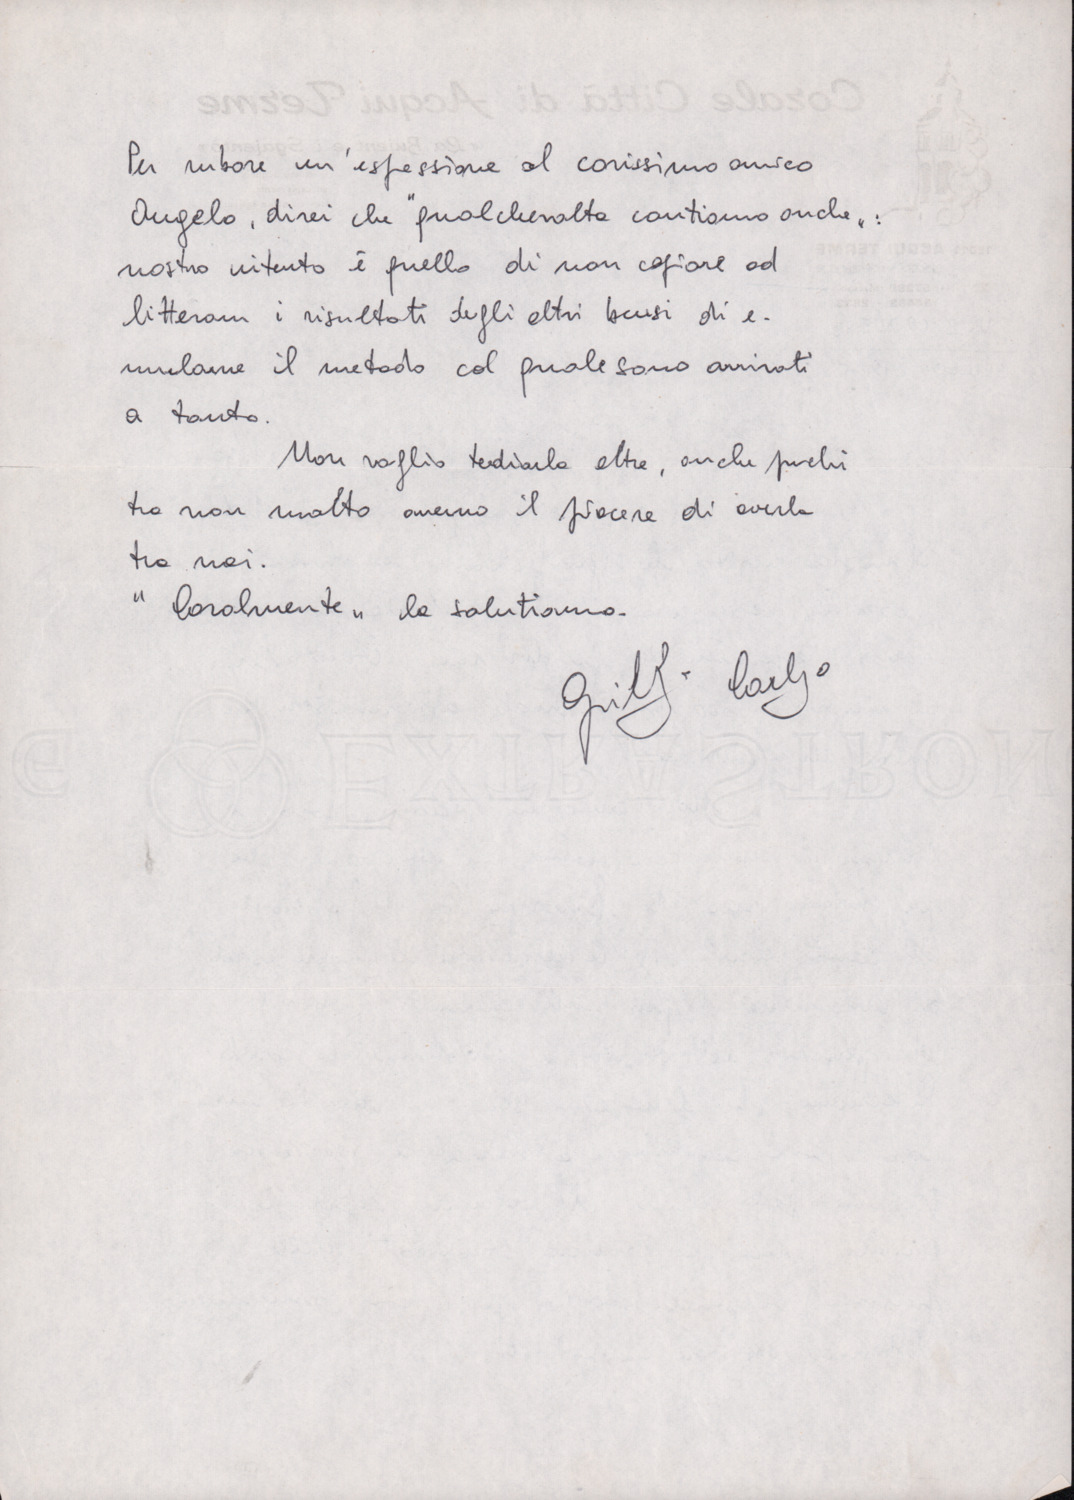 Per rubare un'espressione al carissimo amico
Angelo, direi che "qualchevolta cantiamo anche„:
nostro intento è quello di non copiare ad
litteram i risultati degli altri bensì di e-
mularne il metodo col quale sono arrivati
a tanto.
Non voglio tediarla oltre, anche perché
tra non molto avremo il piacere di averla
tra noi.
"Coralmente„ la salutiamo.
Carlo
Corale Città di Acqui Terme
EXTRA STRONG